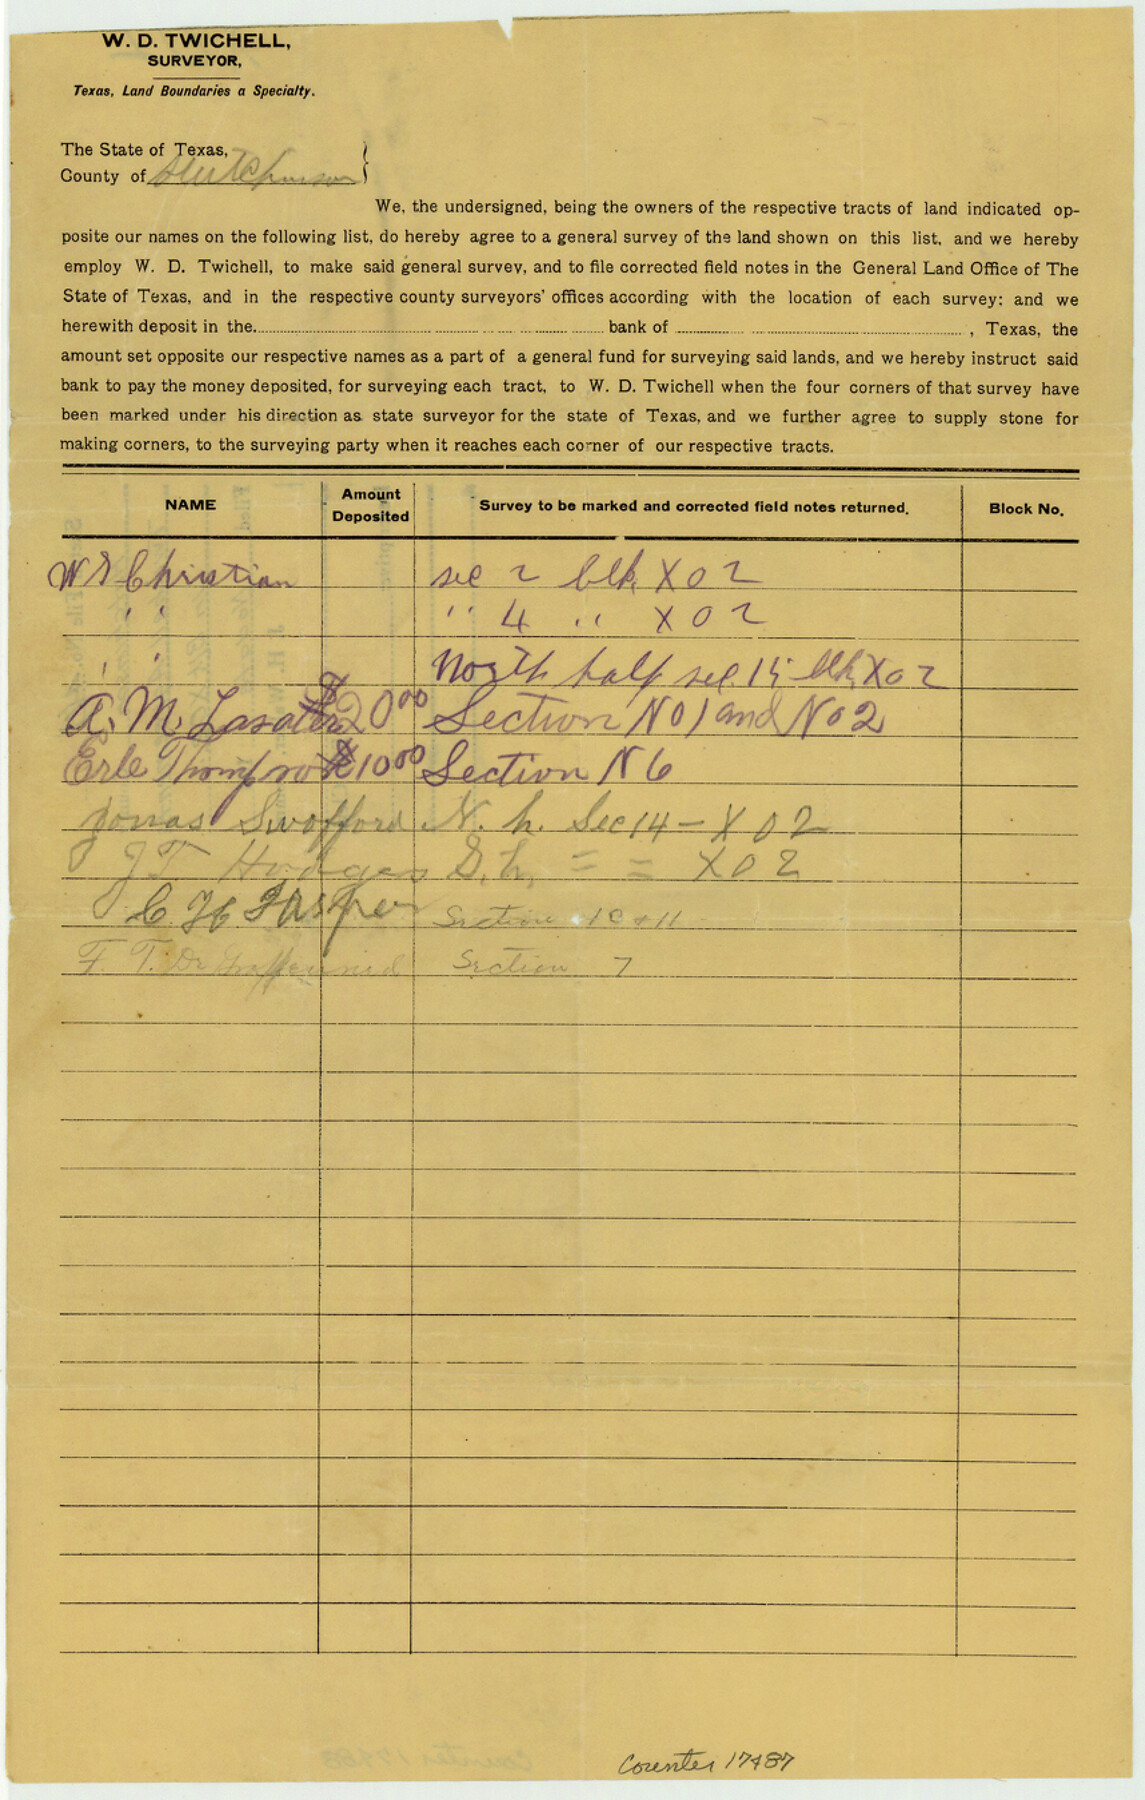 W. D. TWICHELL,
SURVEYOR,
Texas, Land Boundaries a Specialty.
The State of Texas, }
County of Hutchinson
We, the undersigned, being the owners of the respective tracts of land indicated op-
posite our names on the following list, do hereby agree to a general survey of the land shown on this list, and we hereby
employ W. D. Twichell, to make said general survey, and to file corrected field notes in the General Land Office of The
State of Texas, and in the respective county surveyors' offices according with the location of each survey; and we
herewith deposit in the bank of , Texas, the
amount set opposite our respective names as a part of a general fund for surveying said lands, and we hereby instruct said
bank to pay the money deposited, for surveying each tract, to W. D. Twichell when the four corners of that survey have
been marked under his direction as state surveyor for the state of Texas, and we further agree to supply stone for
making corners, to the surveying party when it reaches each corner of our respective tracts.
NAME Amount Deposited Survey to be marked and corrected field notes returned. Block No.
W E Christian sec 2 blk, X02
" " " 4 " X02
" " North half sec. 15 blk, X02
A. M. Lasater $20 00 Section No 1 and No 2
Erle Thompson $10 00 Section N 6
Jonas Swofford N. h. Sec 14 - X02
J T Hodges S. h. = = X02
C. H. Jasper Section 10 & 11
F. T. DeGraffenried Section 7
Counter 17487